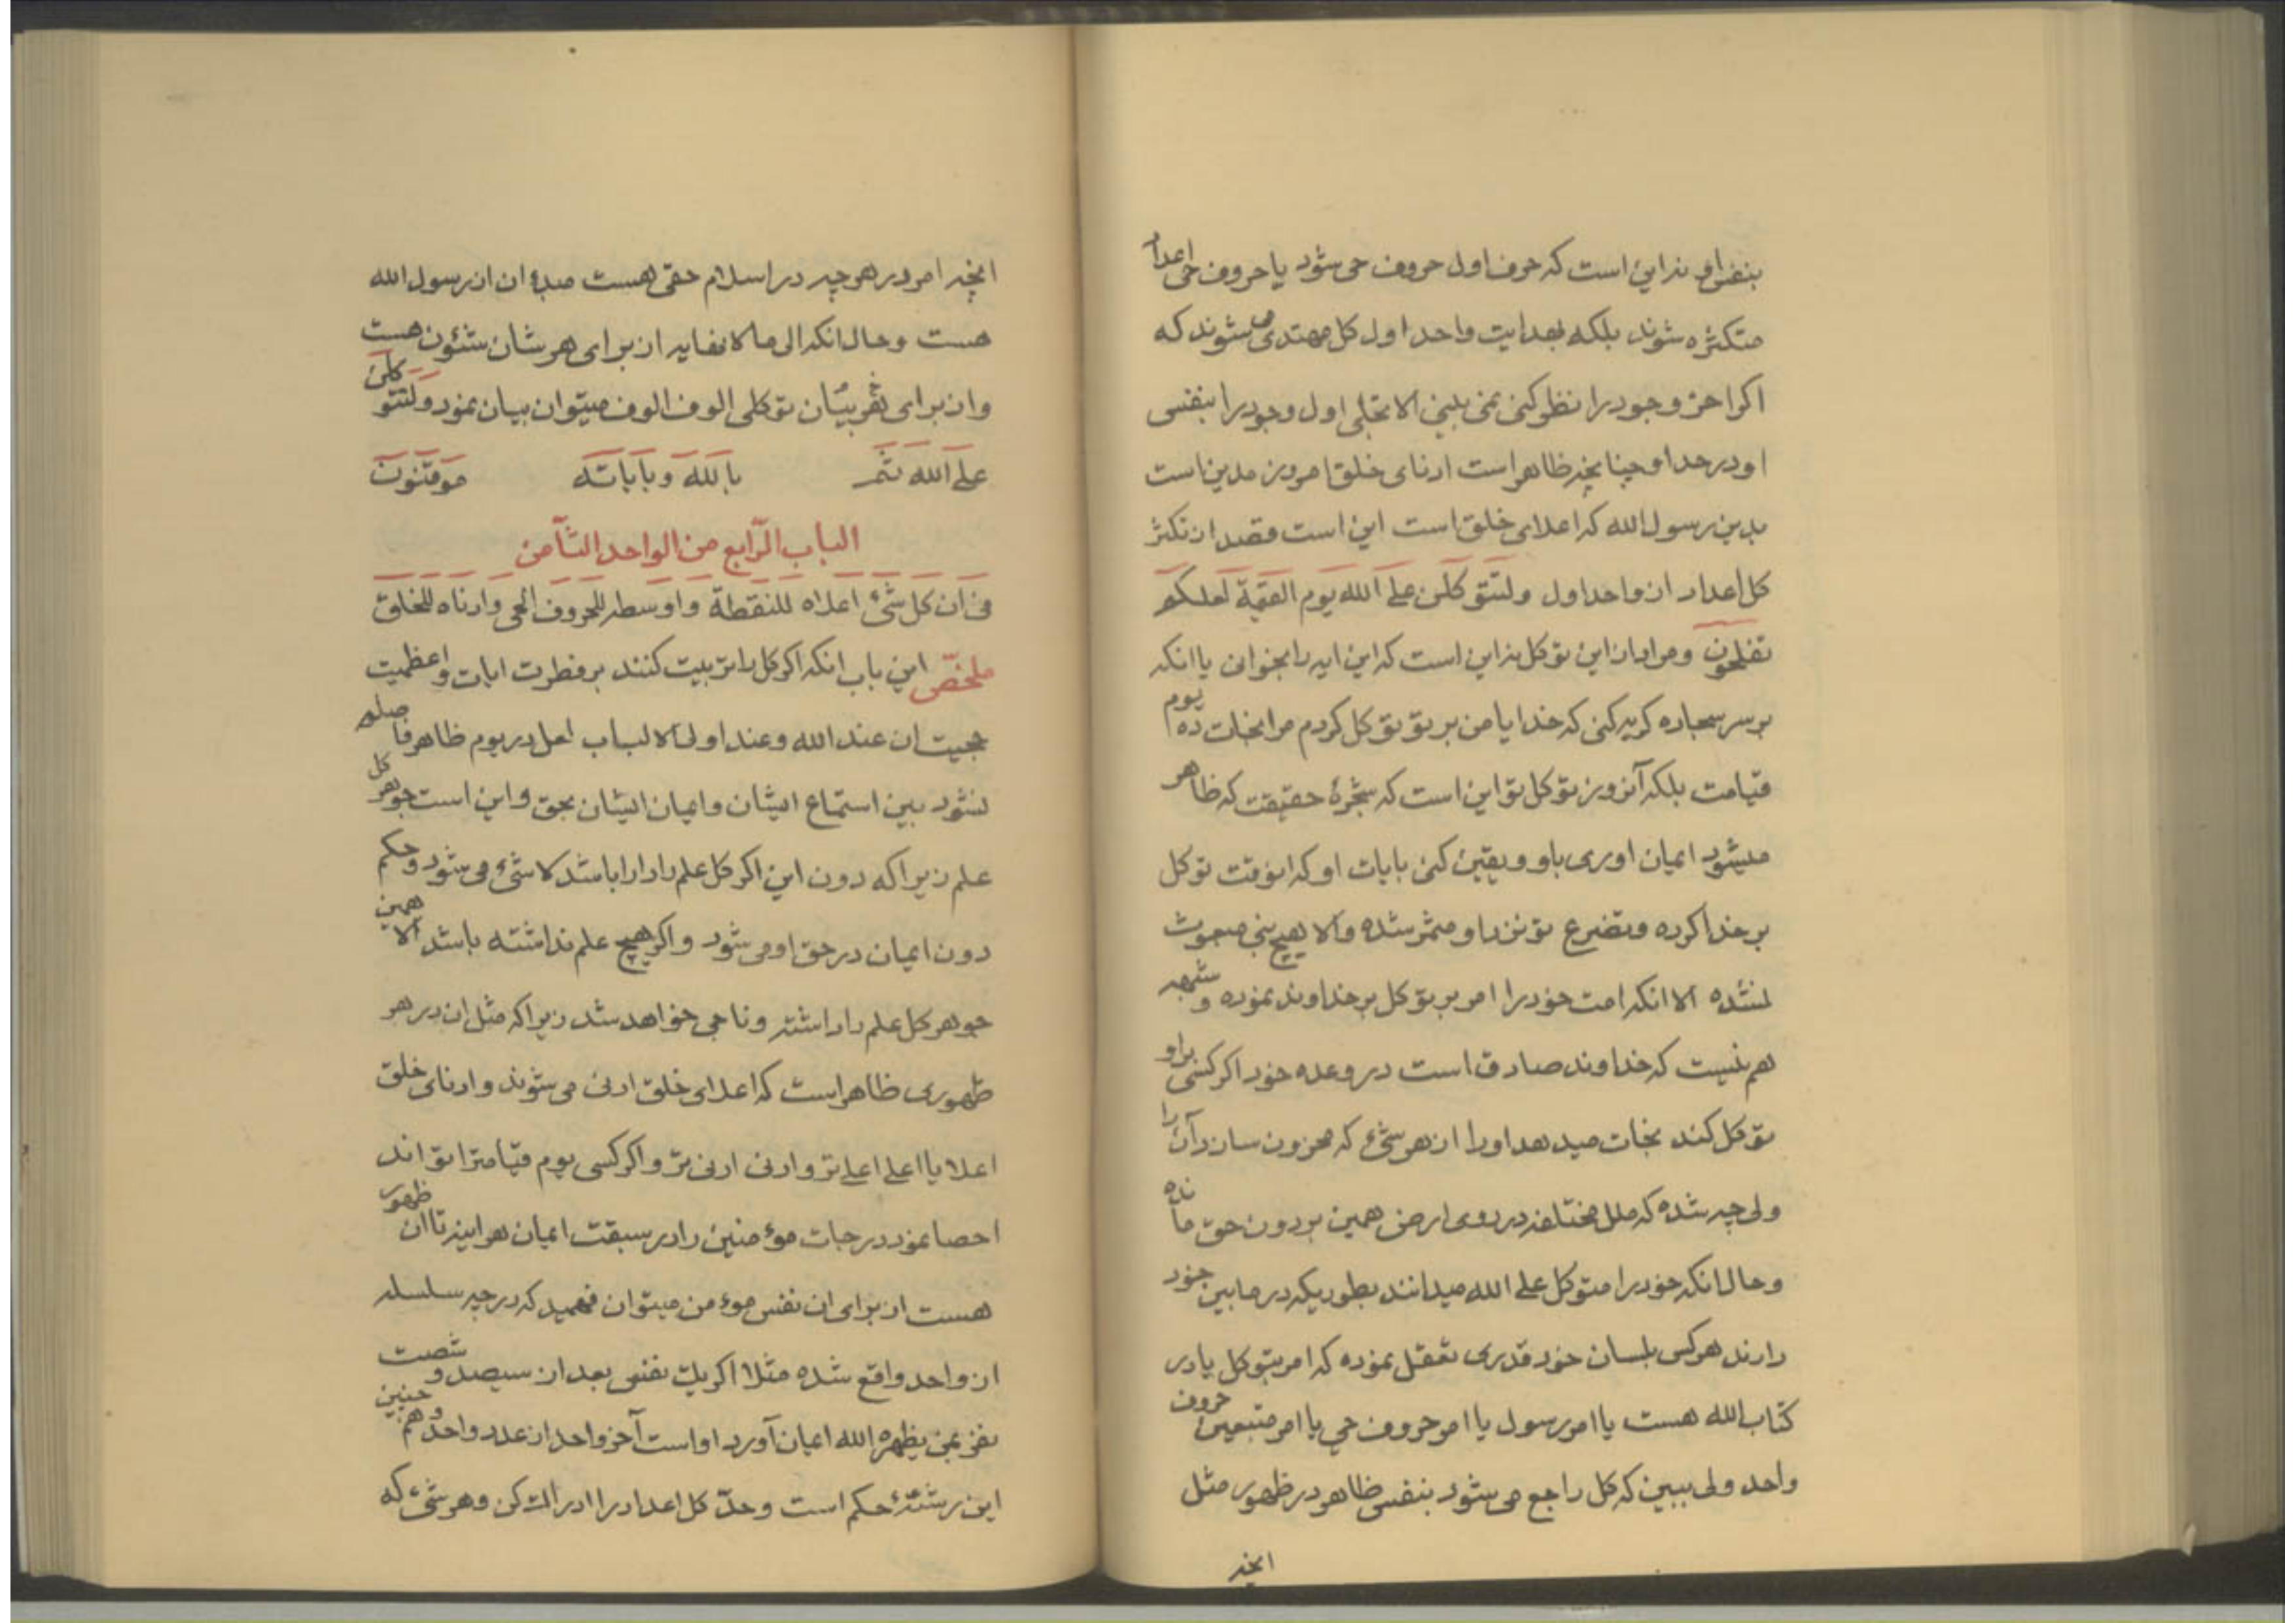 بنفس او نه این است که حرف اول حروف حی شود یا حروف حی اعداد
متکثره شوند بلکه بهدایت واحد اول کل مهتدی میشوند که
اکر اخر وجود را نظر کنی نمی بینی الا تجلی اول وجود را بنفس
او در حد او چنانچه ظاهر است ادنای خلق امروز مدین است
بدین رسول الله که اعلای خلق است این است قصد از تکثر
کل اعداد از واحد اول ولتتوکلن علی الله یوم القیمة لعلکم
تفلحون و مراد از این توکل نه این است که این ایه را بخوانی یا انکه
بر سر سجاده کریه کنی که خدایا من بر تو توکل کردم مرا نجات ده یوم
قیامت بلکه آنروز توکل تو این است که شجرهٔ حقیقت که ظاهر
میشود ایمان اوری باو و یقین کنی بایات او که انوقت توکل
بر خدا کرده و تضرع تو نزد او مثمر شده والا هیچ نبی مبعوث
نشده الا انکه امت خود را امر بر توکل بر خداوند نموده و شبهه
هم نیست که خداوند صادق است در وعده خود اکر کسی براو
توکل کند نجات میدهد اورا از هر شیٔ که محزون سازد آن را
ولی چه شده که ملل مختلفه در روی ارض همین بر دون حق مانده
و حال انکه خود را متوکل علی الله میدانند بطوریکه در مابین خود
دارند هر کس بلسان خود قدری تعقل نموده که امر بتوکل یا در
کتاب الله هست یا امر رسول یا امر حروف حی یا امر متبعین حروف
واحد ولی ببین که کل راجع می شود بنفس ظاهر در ظهور مثل
انچه
انچه امروز هر چه در اسلام حقی هست مبدء ان از رسول الله
هست و حال انکه الی ما لا نهایه از برای هر شان شئون هست
و از برای هر بیان توکلی الوف الوف میتوان بیان نمود ولتتوکلن
علی الله ثم بالله و بایاته موقنون
الباب الرّابع من الواحد الثّامن
فی ان کل شیٔ اعلاه للنقطة و اوسطه للحروف الحی و ادناه للخلق
ملخّص این باب انکه اکر کل را تربیت کنند بر فطرت ایات و اعظمیت
حجیت ان عند الله و عند اولی الالباب لعل در یوم ظاهر فاصله
نشود بین استماع ایشان و ایمان ایشان بحق و این است جوهر کل
علم زیرا که دون این اکر کل علم را دارا باشد لا شیٔ می شود و حکم
دون ایمان در حق او می شود و اکر هیچ علم نداشته باشد الا همین
جوهر کل علم را داشته و ناجی خواهد شد زیرا که مثل ان در هر
ظهوری ظاهر است که اعلای خلق ادنی می شوند و ادنای خلق
اعلا یا اعلی اعلی تر و ادنی ادنی تر و اکر کسی یوم قیامت را تواند
احصا نمود درجات موٴمنین را در سبقت ایمان هر اینه تا ان ظهور
هست از برای ان نفس موٴمن میتوان فهمید که در چه سلسله
از واحد واقع شده مثلا اکر یک نفسی بعد از سیصد و شصت
نفر بمن یظهره الله ایمان آورد او است آخر واحد از عدد واحد و هم چنین
این رشتهٔ حکم است و حدّ کل اعداد را ادراک کن و هر شیٔ که